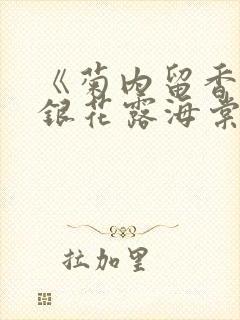 《菊内留香
銀花露海棠
拉加里